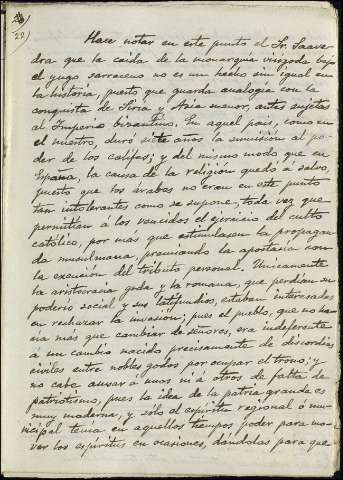 22)
Hace notar en este punto el Sr. Saave-
dra que la caida de la monarquia visigoda bajo
el yugo sarraceno no es un hecho sin igual en
la historia, puesto que guarda analogia con la
conquista de Siria y Asia menor, antes sujetas
al Imperio bizantino. En aquel pais, como en
el nuestro, duró siete años la sumisión al po-
der de los califas; y del mismo modo que en
España, la causa de la religion quedó á salvo,
puesto que los árabes no eran en este punto
tan intolerantes como se supone, toda vez que
permitian á los vencidos el ejercicio del culto
católico, por más que estimulasen la propagan-
da musulmana, premiando la apostasia con
la exención del tributo personal. Unicamente
la aristocracia goda y la romana, que perdian su
poderio social y sus latifundios, estaban interesadas
en rechazar la invasión; pues el pueblo, que no ha-
cia más que cambiar de señores, era indeferente
á un cambio nacido precisamente de discordias
civiles entre nobles godos por ocupar el trono; y
no cabe acusar á unos ni á otros de falta de
patriotismo, pues la idea de la patria grande es
muy moderna, y sólo el espiritu regional ó mu-
nicipal tenia en aquellos tiempos poder para mo-
ver los espiritus en ocasiones, dándolas para que